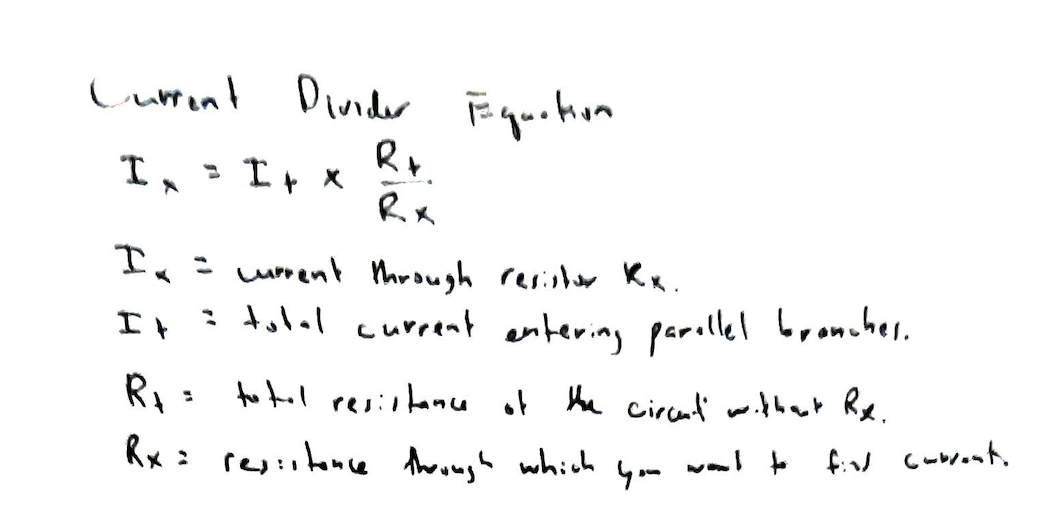 Current Divider Equation
Ix = It x Rt / Rx
Ix = current through resistor Rx.
It = total current entering parallel branches.
Rt = total resistance of the circuit without Rx.
Rx = resistance through which you want to find current.